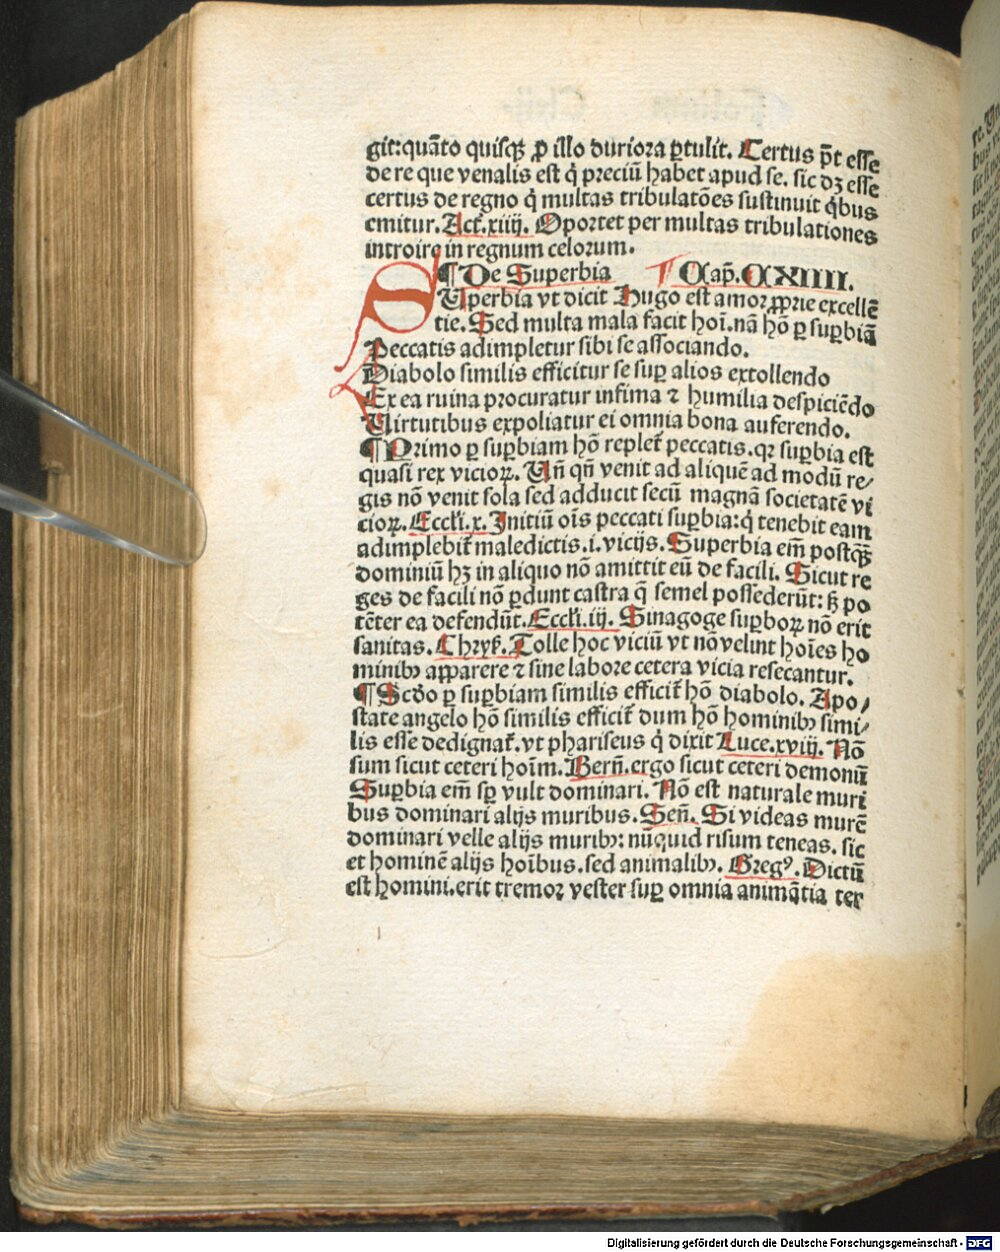 git: quãto quisqꝫ ꝓ illo duriora ꝑtulit. Certus põt esse
de re que venalis est q̇ preciũ habet apud se. sic dꝫ esse
certus de regno q̇ multas tribulatões sustinuit q̇bus
emitur. Act̃. xiiij. Oportet per multas tribulationes
introire in regnum celorum.
¶ De Superbia ¶ Cap̃. CXIIII.
SUperbia vt dicit Hugo est amor ꝓprie excellẽ
tie. Sed multa mala facit hoĩ. nã hõ ꝑ suꝑbiã
Peccatis adimpletur sibi se associando.
Diabolo similis efficitur se suꝑ alios extollendo
Ex ea ruina procuratur infima ⁊ humilia despiciẽdo
Uirtutibus expoliatur ei omnia bona auferendo.
¶ Primo ꝑ suꝑbiam hõ replet̃ peccatis. qꝛ suꝑbia est
quasi rex vicioꝝ. Uñ qñ venit ad aliquẽ ad modũ re⸗
gis nõ venit sola sed adducit secũ magnã societatẽ vi
cioꝝ. Eccl̃i. x. Initiũ oĩs peccati suꝑbia: q̇ tenebit eam
adimplebit̃ maledictis .i. vicijs. Superbia em̃ postqꝫ̃
dominiũ hꝫ in aliquo nõ amittit eũ de facili. Sicut re
ges de facili nõ ꝑdunt castra q̇ semel possederũt: sꝫ po
tẽter ea defendũt. Eccl̃i. iij. Sinagoge suꝑboꝝ nõ erit
sanitas. Chrys̃. Tolle hoc viciũ vt nõ velint hoĩes ho
minibꝰ apparere ⁊ sine labore cetera vicia resecantur.
¶ Scd̃o ꝑ suꝑbiam similis efficit̃ hõ diabolo. Apo⸗
state angelo hõ similis efficit̃ dum hõ hominibꝰ simi⸗
lis esse dedignat̃. vt phariseus q̇ dixit Luce. xviij. Nõ
sum sicut ceteri hoĩm. Bern̄. ergo sicut ceteri demoniũ
Suꝑbia em̃ sꝑ vult dominari. Nõ est naturale muri
bus dominari alijs muribus. Sen̄. Si videas murẽ
dominari velle alijs muribꝰ: nũquid risum teneas. sic
et hominẽ alijs hoĩbus. sed animalibꝰ. Gregꝰ. Dictũ
est homini. erit tremor vester suꝑ omnia animãtia ter
Digitalisierung gefördert durch die Deutsche Forschungsgemeinschaft - DFG